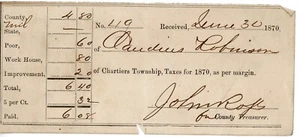 County, 4 80 No. 419 Received, June 30 1870,
Mil
State,
Poor, 60 of Claudius Robinson
Work House, 80
Improvement, 20 of Chartiers Township, Taxes for 1870, as per margin.
Total, 6 40
5 per Ct. 32 John Ross
Paid, 6.08 County Treasurer.